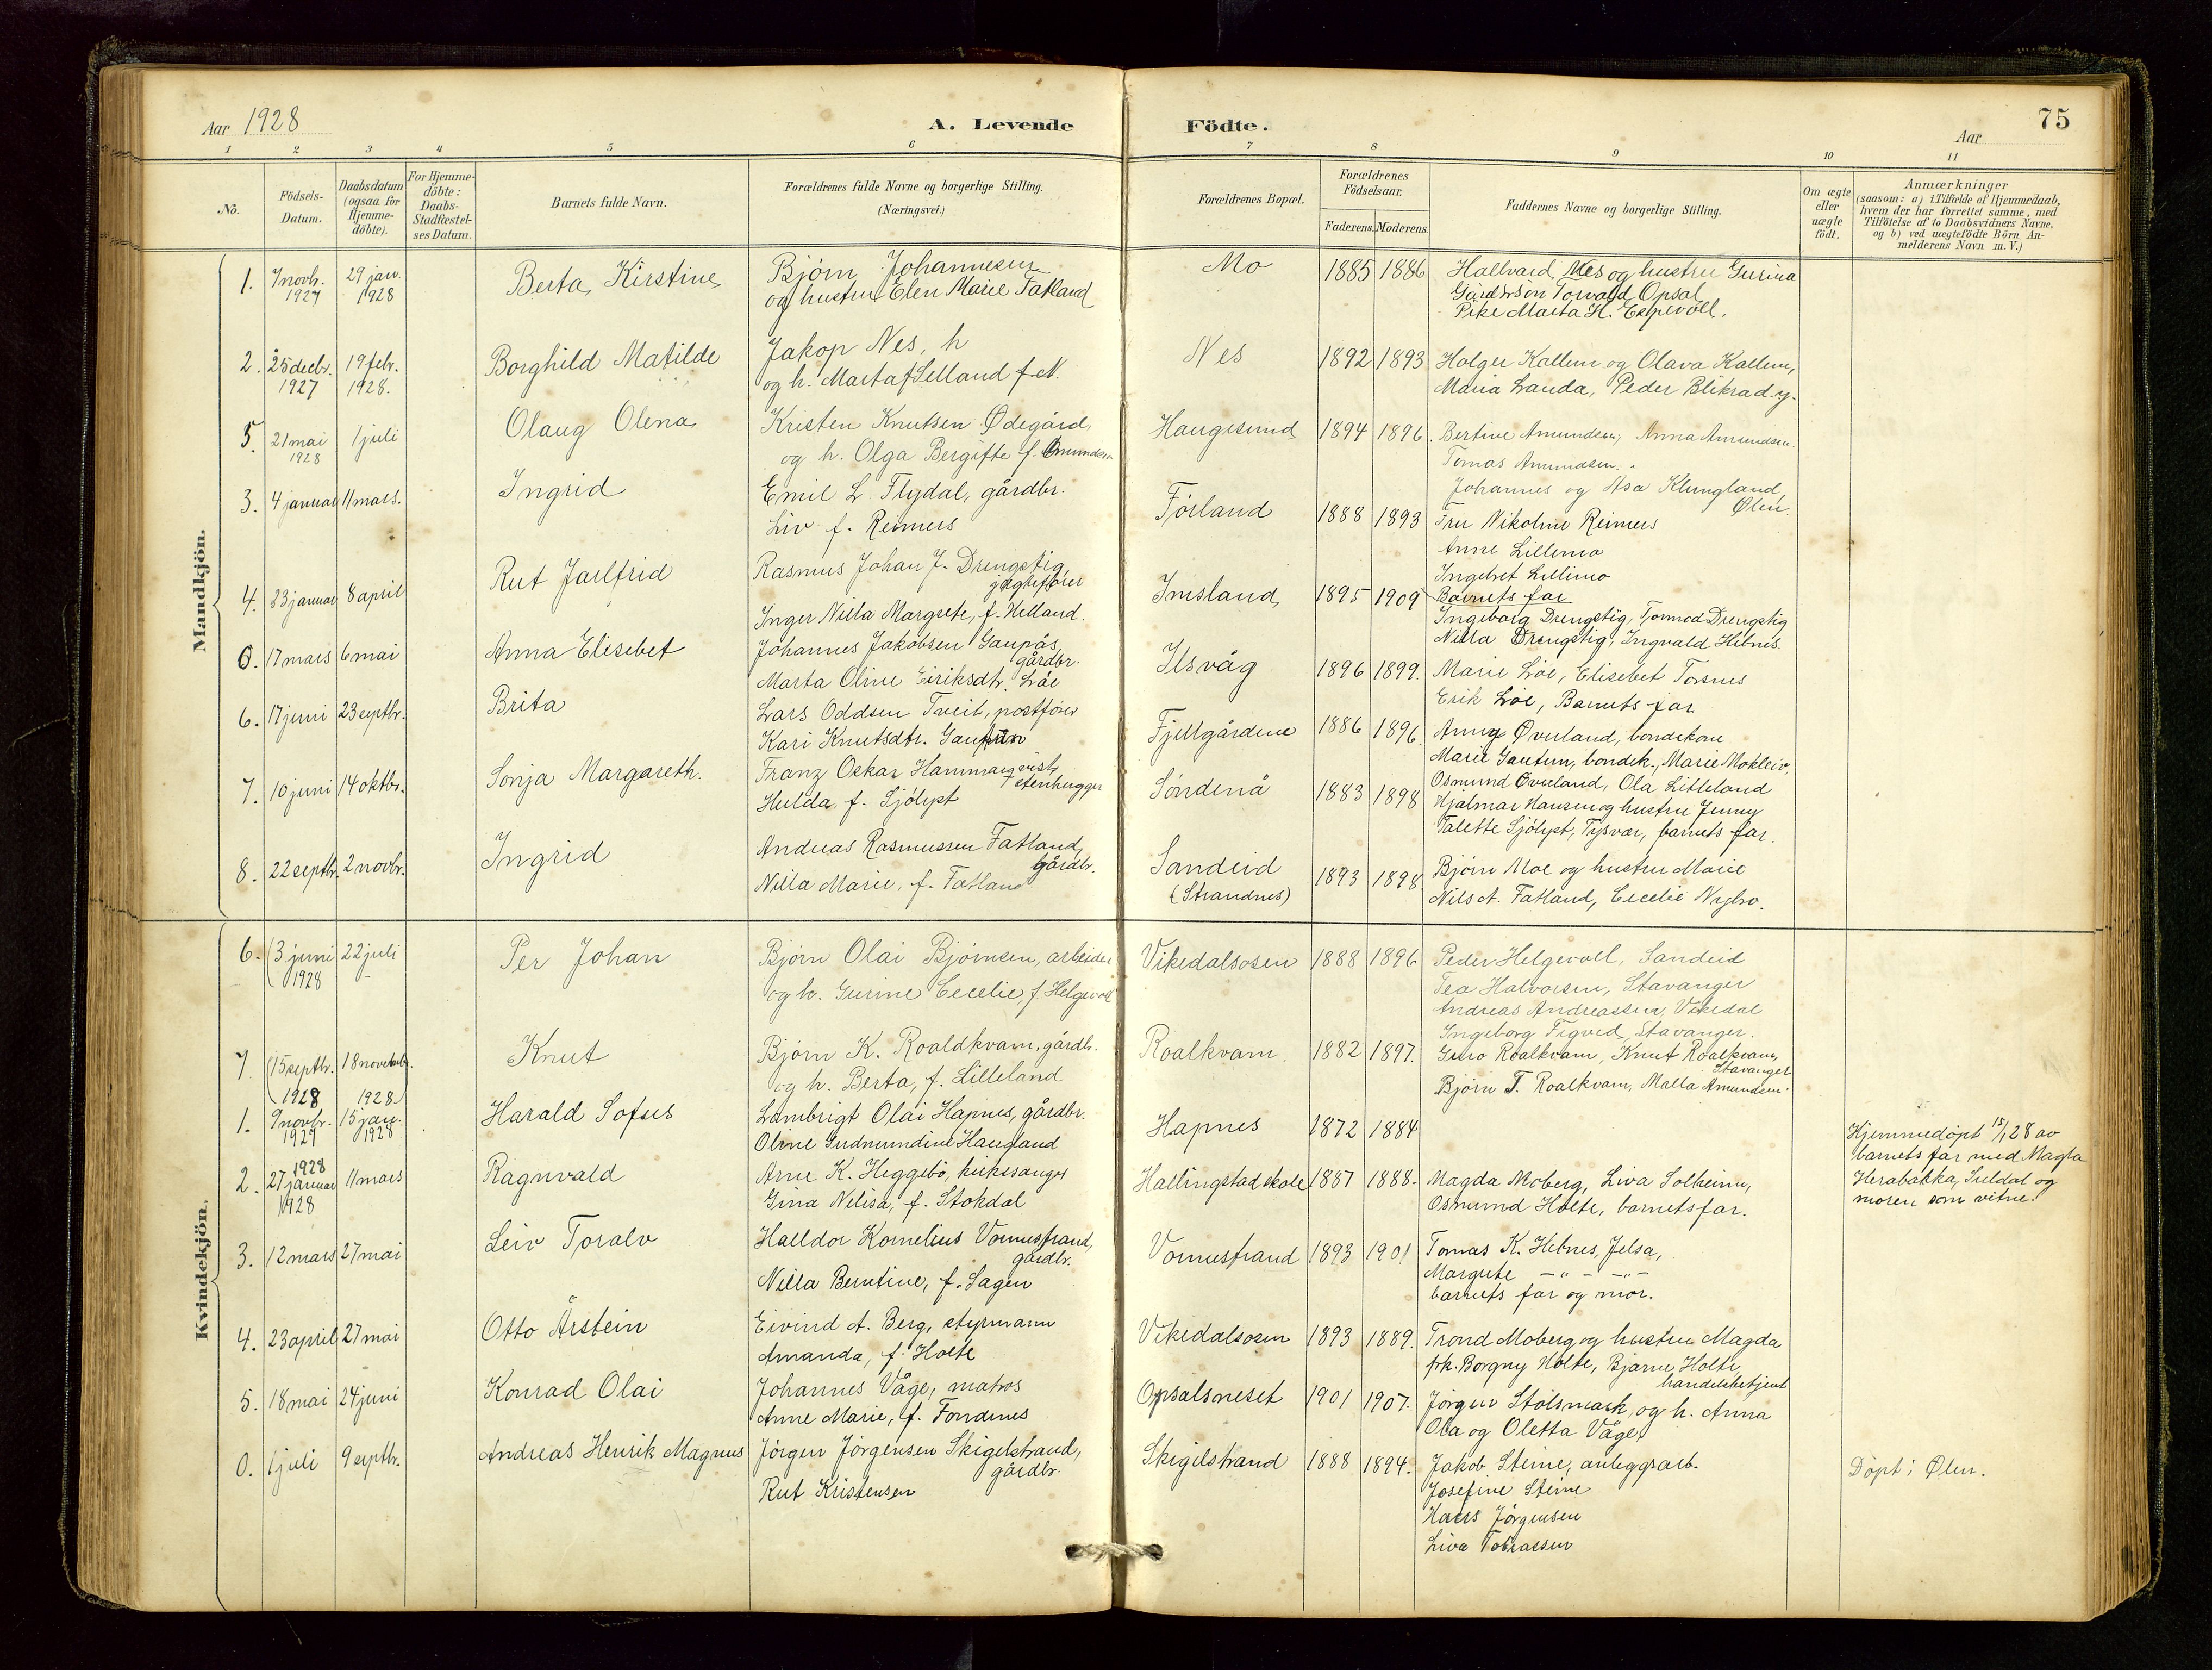 Aar 1928
A. Levende
Födte.
Aar
75
1 2 3 4 5 6 7 8 9 10 11
No.
Födsels-
Datum.
Daabsdatum
(ogsaa for
Hjemme-
döbte).
For Hjemme-
döbte:
Daabs-
Stadfæstel-
ses Datum.
Barnets fulde Navn.
Forældrenes fulde Navne og borgerlige Stilling.
(Næringsvei.)
Forældrenes Bopæl.
Forældrenes
Födselsaar.
Faderens. Moderens.
Faddernes Navne og borgerlige Stilling.
Om ægte
eller
uægte
födt.
Anmærkninger
(saasom: a) i Tilfælde af Hjemmedaab,
hvem der har forrettet samme, med
Tilföielse af to Daabsvidners Navne.
og b) ved uægtefödte Börn An-
melderens Navn m. V.)
Mandkjön.
1. 7 novbr. 1927 29 jan. 1928 Berta Kirstine
Bjørn Johannesen
og hustru Elen Marie Fatland
Mo 1885 1886
Hallvard Nes og hustru Gurina
Gårdbr.søn Torvald Opsal
Pike Marta H. Espevoll.
2. 25 decbr. 1927 19 febr. 1928. Borghild Matilde
Jakop Nes, h
og h. Marta f Selland f. N.
Nes 1892 1893
Holger Kallum og Olava Kallem,
Maria Landa, Peder Blikrad.
5 21 mai 1928 1 juli Olaug Olena
Kristen Knutsen Ødegård,
og h. Olga Bergitte f. Omundsen
Haugesund 1894 1896.
Bertine Amundsen, Anna Amundsen.
Tomas Amundsen.
3. 4 januar 11 mars. Ingrid
Emil L. Flydal, gårdbr.
Liv f. Reimers
Førland 1888 1893
Johannes og Åsa Klungland,
Ølen.
Fru Nikoline Reimers
Anne Lillemo
Ingebret Lillimo
4. 23 januar 8 april Rut Jarlfrid
Rasmus Johan J. Drengstig,
jægtefører
Inger Nilla Margrete, f. Helland.
Imsland 1895 1909
Barnets far
Ingeborg Drengstig, Tormod Drengstig
Nilla Drengstig, Ingvald Hebnes.
0. 17 mars 6 mai Anna Elisebet
Johannes Jakobsen Gaupås,
gårdbr.
Marta Oline Eiriksdtr. Løe
Ilsvåg 1896 1899.
Marie Løe, Elisebet Torsnes
Erik Løe, Barnets far
6. 17 juni 23 septbr. Brita
Lars Oddsen Tveit, postfører
Kari Knutsdtr.
Fjellgårdene 1886 1896.
Anna Øverland, bondekone
Marie Gautun, bondek., Marie Mokleiv,
Osmund Øverland, Ola Litleland
7. 10 juni 14 oktbr. Sonja Margareth.
Franz Oskar Hammarqvist,
stenhugger
Hulda f. Sjölyst
Søndenå 1883 1898
Hjalmar Hansen og hustru Jenny
Talette Sjölyst, Tysvær, barnets far.
8. 22 septbr. 2 novbr. Ingrid
Andreas Rasmussen Fatland,
Gårdbr.
Nilla Marie, f. Fatland
Sandeid
(Strandnes)
1893 1898
Bjørn Moe og hustru Marie
Nils A. Fatland, Cecelie Nybro.
Kvindekjön.
6. 3 juni 1928 22 juli Per Johan
Bjørn Olai Bjørnsen, arbeider
og h. Gurine Cecelie, f. Helgevoll
Vikedalsosen 1888 1896
Peder Helgevoll, Sandeid
Tea Halvorsen, Stavanger
Andreas Andreassen, Vikedal
Ingeborg Tigved, Stavanger.
7. 15 septbr. 1928 18 novembr. 1928 Knut
Bjørn K. Roaldkvam, gårdb.
og h. Berta, f. Lilleland
Roalkvam. 1882 1897.
Guro Roalkvam, Knut Roalkvam,
Stavanger
Bjørn T. Roalkvam, Malla Amundsen.
1. 9 novbr. 1927 15 jan. 1928 Harald Sofus
Lambrigt Olai Hapnes, gårdbr.
Oline Gudmundine Haugland
Hapnes 1872 1884
Hjemmedøpt 15/1 28 av
barnets far med Magla
Herabakka, Suldal og
moren som vitne.
2. 1928 27 januar 1928 11 mars Ragnvald
Arne K. Heggebö, kirkesanger
Gina Nelisa, f. Stokdal
Hallingstad skole 1887 1888.
Magda Moberg, Liva Solheim,
Osmund Holte, barnets far.
3. 12 mars 27 mai Leiv Toralv
Halldor Kornelius Vormestrand,
gårdbr.
Nilla Berntine, f. Sagen
Vormestrand 1893 1901
Tomas K. Hebnes, Jelsa,
Margrete — " — — " —
barnets far og mor.
4. 23 april 27 mai Otto Årstein
Eivind A. Berg, styrmann
Amanda, f. Holte
Vikedalsosen 1893 1889.
Trond Moberg og hustru Magda
frk. Borgny Holte, Bjarne Holte,
handelsbetjent
5. 18 mai 24 juni Konrad Olai
Johannes Våge, matros
Anne Marie, f. Fondenes
Opsalsneset 1901 1907.
Jørgen Stølsmark, og h. Anna
Ola og Oletta Våge,
0. 1 juli 9 septbr. Andreas Henrik Magnus
Jörgen Jörgensen Skigelstrand,
gårdbr.
Rut Kristensen
Skigelstrand 1888 1894.
Jakob Steine, anleggsarb.
Josefine Steine
Hans Jörgensen
Liva Tobiassen
Døpt i Ølen.